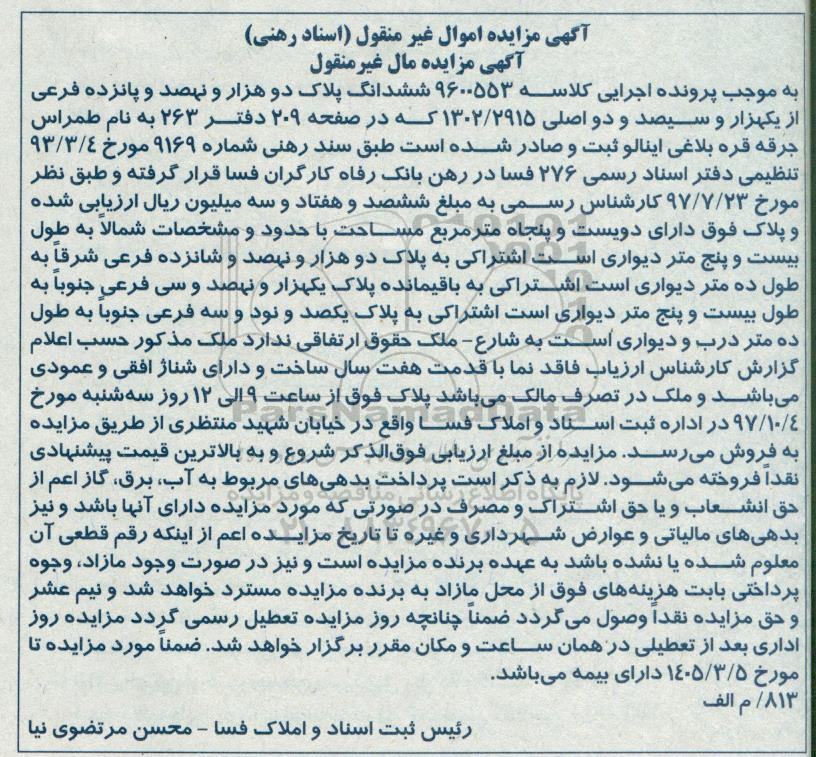 آگهی مزایده اموال غیر منقول (اسناد رهنی)
آگهی مزایده مال غیرمنقول
به موجب پرونده اجرایی کلاسه ۹۶۰۰۵۵۳ ششدانگ پلاک دو هزار و نهصد و پانزده فرعی
از یکهزار و سیصد و دو اصلی ۱۳۰۲/۲۹۱۵ که در صفحه ۲۰۹ دفتر ۲۶۳ به نام طمراس
جرقه قره بلاغی اینالو ثبت و صادر شده است طبق سند رهنی شماره ۹۱۶۹ مورخ ۹۳/۳/۴
تنظیمی دفتر اسناد رسمی ۲۷۶ فسا در رهن بانک رفاه کارگران فسا قرار گرفته و طبق نظر
مورخ ۹۷/۷/۲۳ کارشناس رسمی به مبلغ ششصد و هفتاد و سه میلیون ریال ارزیابی شده
و پلاک فوق دارای دویست و پنجاه مترمربع مساحت با حدود و مشخصات شمالاً به طول
بیست و پنج متر دیواری است اشتراکی به پلاک دو هزار و نهصد و شانزده فرعی شرقاً به
طول ده متر دیواری است اشتراکی به باقیمانده پلاک یکهزار و نهصد و سی فرعی جنوباً به
طول بیست و پنج متر دیواری است اشتراکی به پلاک یکصد و نود و سه فرعی جنوباً به طول
ده متر درب و دیواری است به شارع - ملک حقوق ارتفاقی ندارد ملک مذکور حسب اعلام
گزارش کارشناس ارزیاب فاقد نما با قدمت هفت سال ساخت و دارای شناژ افقی و عمودی
می‌باشد و ملک در تصرف مالک می‌باشد پلاک فوق از ساعت ۹ الی ۱۲ روز سه‌شنبه مورخ
۹۷/۱۰/۴ در اداره ثبت اسناد و املاک فسا واقع در خیابان شهید منتظری از طریق مزایده
به فروش می‌رسد. مزایده از مبلغ ارزیابی فوق‌الذکر شروع و به بالاترین قیمت پیشنهادی
نقداً فروخته می‌شود. لازم به ذکر است پرداخت بدهی‌های مربوط به آب، برق، گاز اعم از
حق انشعاب و یا حق اشتراک و مصرف در صورتی که مورد مزایده دارای آنها باشد و نیز
بدهی‌های مالیاتی و عوارض شهرداری و غیره تا تاریخ مزایده اعم از اینکه رقم قطعی آن
معلوم شده یا نشده باشد به عهده برنده مزایده است و نیز در صورت وجود مازاد، وجوه
پرداختی بابت هزینه‌های فوق از محل مازاد به برنده مزایده مسترد خواهد شد و نیم عشر
و حق مزایده نقداً وصول می‌گردد ضمناً چنانچه روز مزایده تعطیل رسمی گردد مزایده روز
اداری بعد از تعطیلی در همان ساعت و مکان مقرر برگزار خواهد شد. ضمناً مورد مزایده تا
مورخ ۱۴۰۵/۳/۵ دارای بیمه می‌باشد.
۸۱۳/ م الف
رئیس ثبت اسناد و املاک فسا - محسن مرتضوی نیا
ParsNamadData
پایگاه اطلاع رسانی مناقصه و مزایده